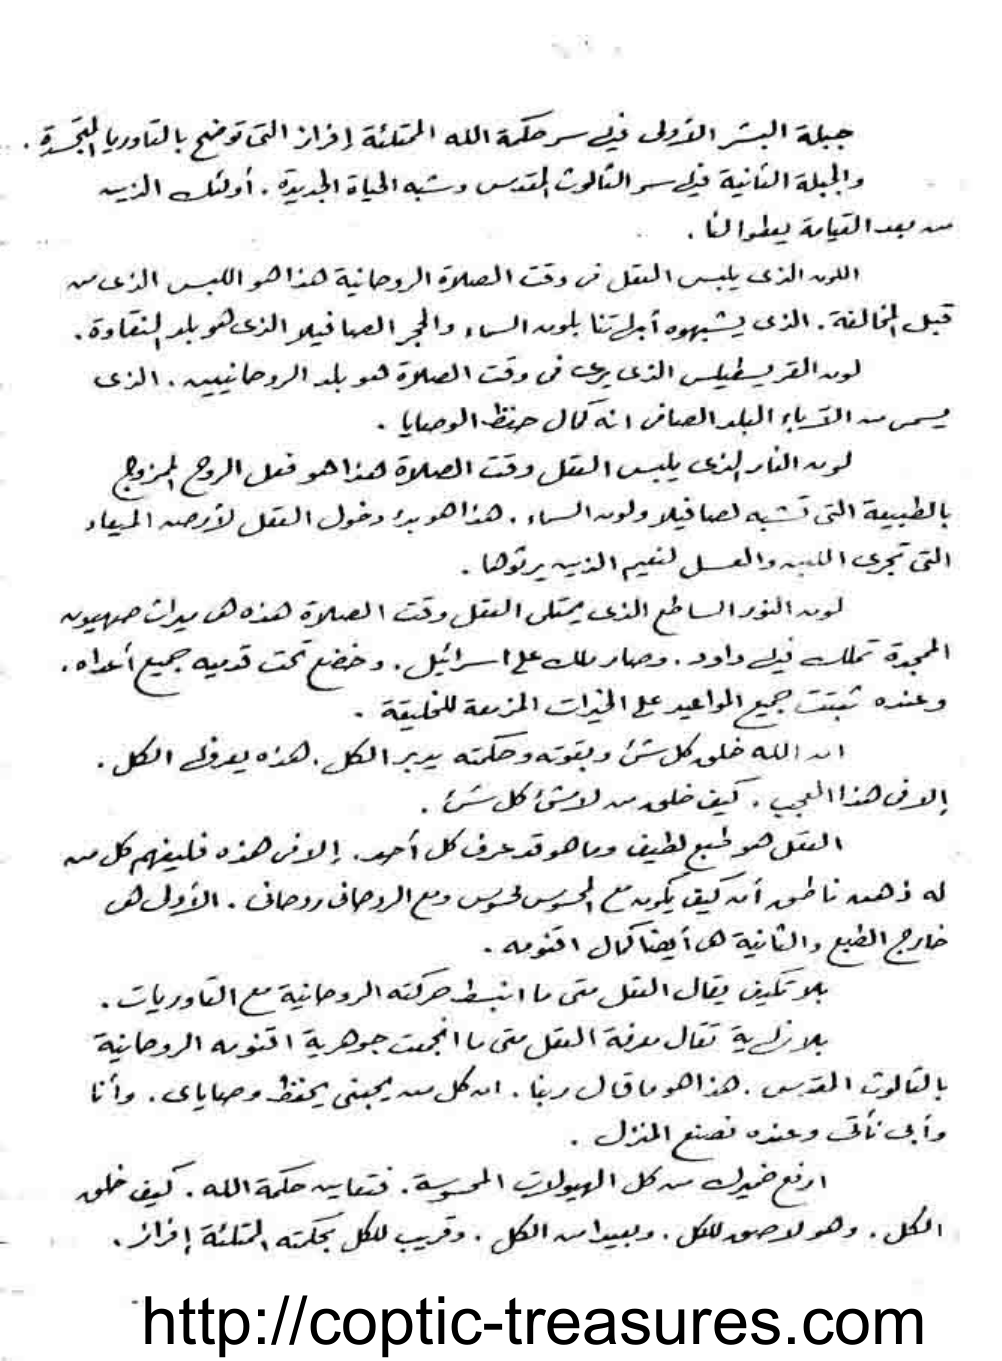 جبلة البشر الأولى فيه سر حكمة الله الممتلئة إفراز التى توضح بالتاوريا المتجسدة .
والجبلة الثانية فيه سر الثالوث المقدس وشبه الحياة الجديدة . أولئك الذين
من بعد القيامة يعطوا لنا .
اللون الذى يلبس العقل فى وقت الصلاة الروحانية هذا هو اللبس الذى من
قبل المخالفة . الذى يشبهوه أبهاتنا بلون السماء والحجر الصافيلا الذى هو بلد النقاوة .
لون القريسطيلس الذى يرى فى وقت الصلاة هو بلد الروحانيين . الذى
يسمى من الآباء البلد الصافى انه كمال حفظ الوصايا .
لون النار الذى يلبس العقل وقت الصلاة هذا هو فعل الروح الممزوج
بالطبيعة التى تشبه لصافيلا ولون السماء . هذا هو بدء دخول العقل لأرض الميعاد
التى تجرى اللبن والعسل لنعيم الذين يرثوها .
لون النور الساطع الذى يمتلى العقل وقت الصلاة هذه هى ميراث صهيون
الممجدة تملك فيه داود . وصار ملك على اسرائيل . وخضع تحت قدميه جميع أعداه .
وعنده ثبتت جميع المواعيد على الخيرات المزمعة للخليقة .
ان الله خلق كل شئ وبقوته وحكمته يدبر الكل . هذه يعرفه الكل .
إلا فى هذا العجب . كيف خلق من لا شئ كل شئ .
العقل هو طبع لطيف وما هو قد عرف كل أحد . إلا فى هذه فليفهم كل من
له ذهن ناطق أن كيف يكون مع المحسوس محسوس ومع الروحانى روحانى . الأولى هى
خارج الطبع والثانية هى أيضا كمال اقنومه .
بلا تكيف يقال العقل متى ما انبسط حركته الروحانية مع التاوريات .
بلا نهاية تقال معرفة العقل متى ما انجمعت جوهرية اقنومه الروحانية
بالثالوث المقدس . هذا هو ما قال ربنا . ان كل من يحبنى يحفظ وصاياى . وأنا
وأبى نأتى وعنده نصنع المنزل .
ارفع ضميرك من كل الهيولات المحسوسة . فتعاين حكمة الله . كيف خلق
الكل . وهو لاصق للكل . وبعيدا من الكل . وقريب للكل بحكمته الممتلئة إفراز .
http://coptic-treasures.com